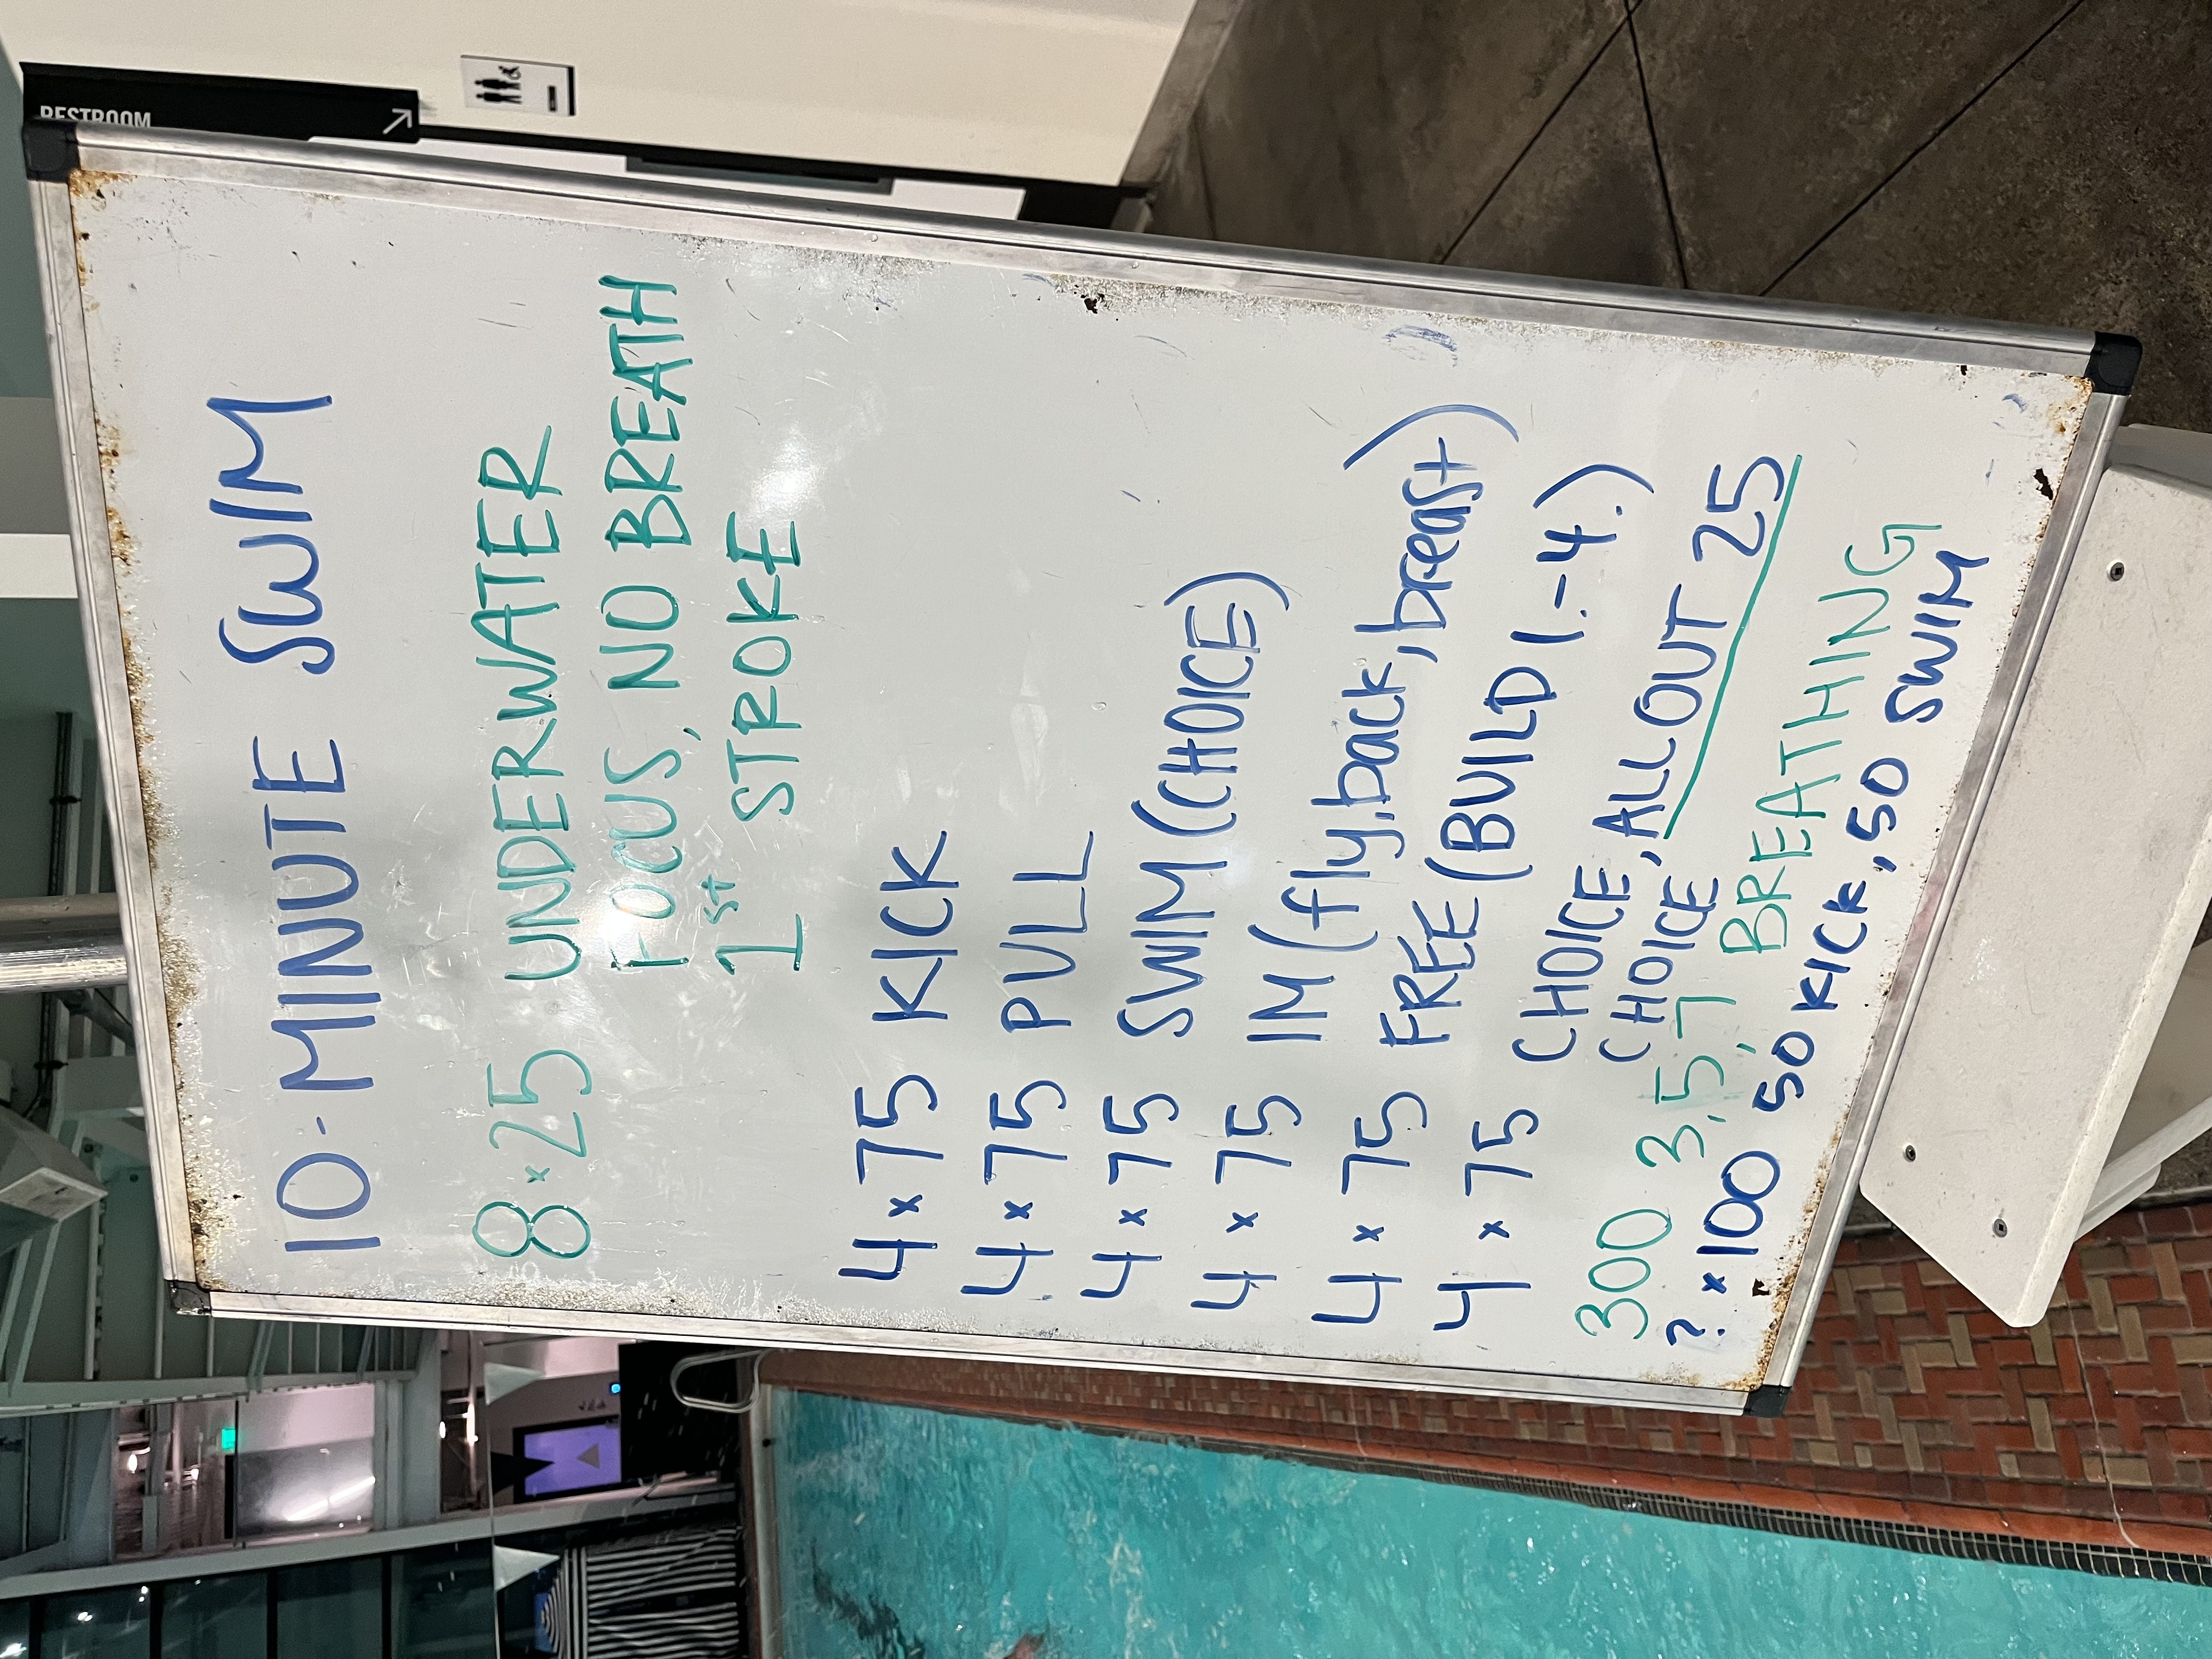 RESTROOM
10-MINUTE SWIM
8x25 UNDERWATER
FOCUS, NO BREATH
1st STROKE
4x75 KICK
4x75 PULL
4x75 SWIM (CHOICE)
4x75 IM (fly, back, breast)
4x75 FREE (BUILD 1.-4.)
4x75 CHOICE, ALL OUT 25
CHOICE
300 3,5,7 BREATHING
?x100 50 KICK, 50 SWIM